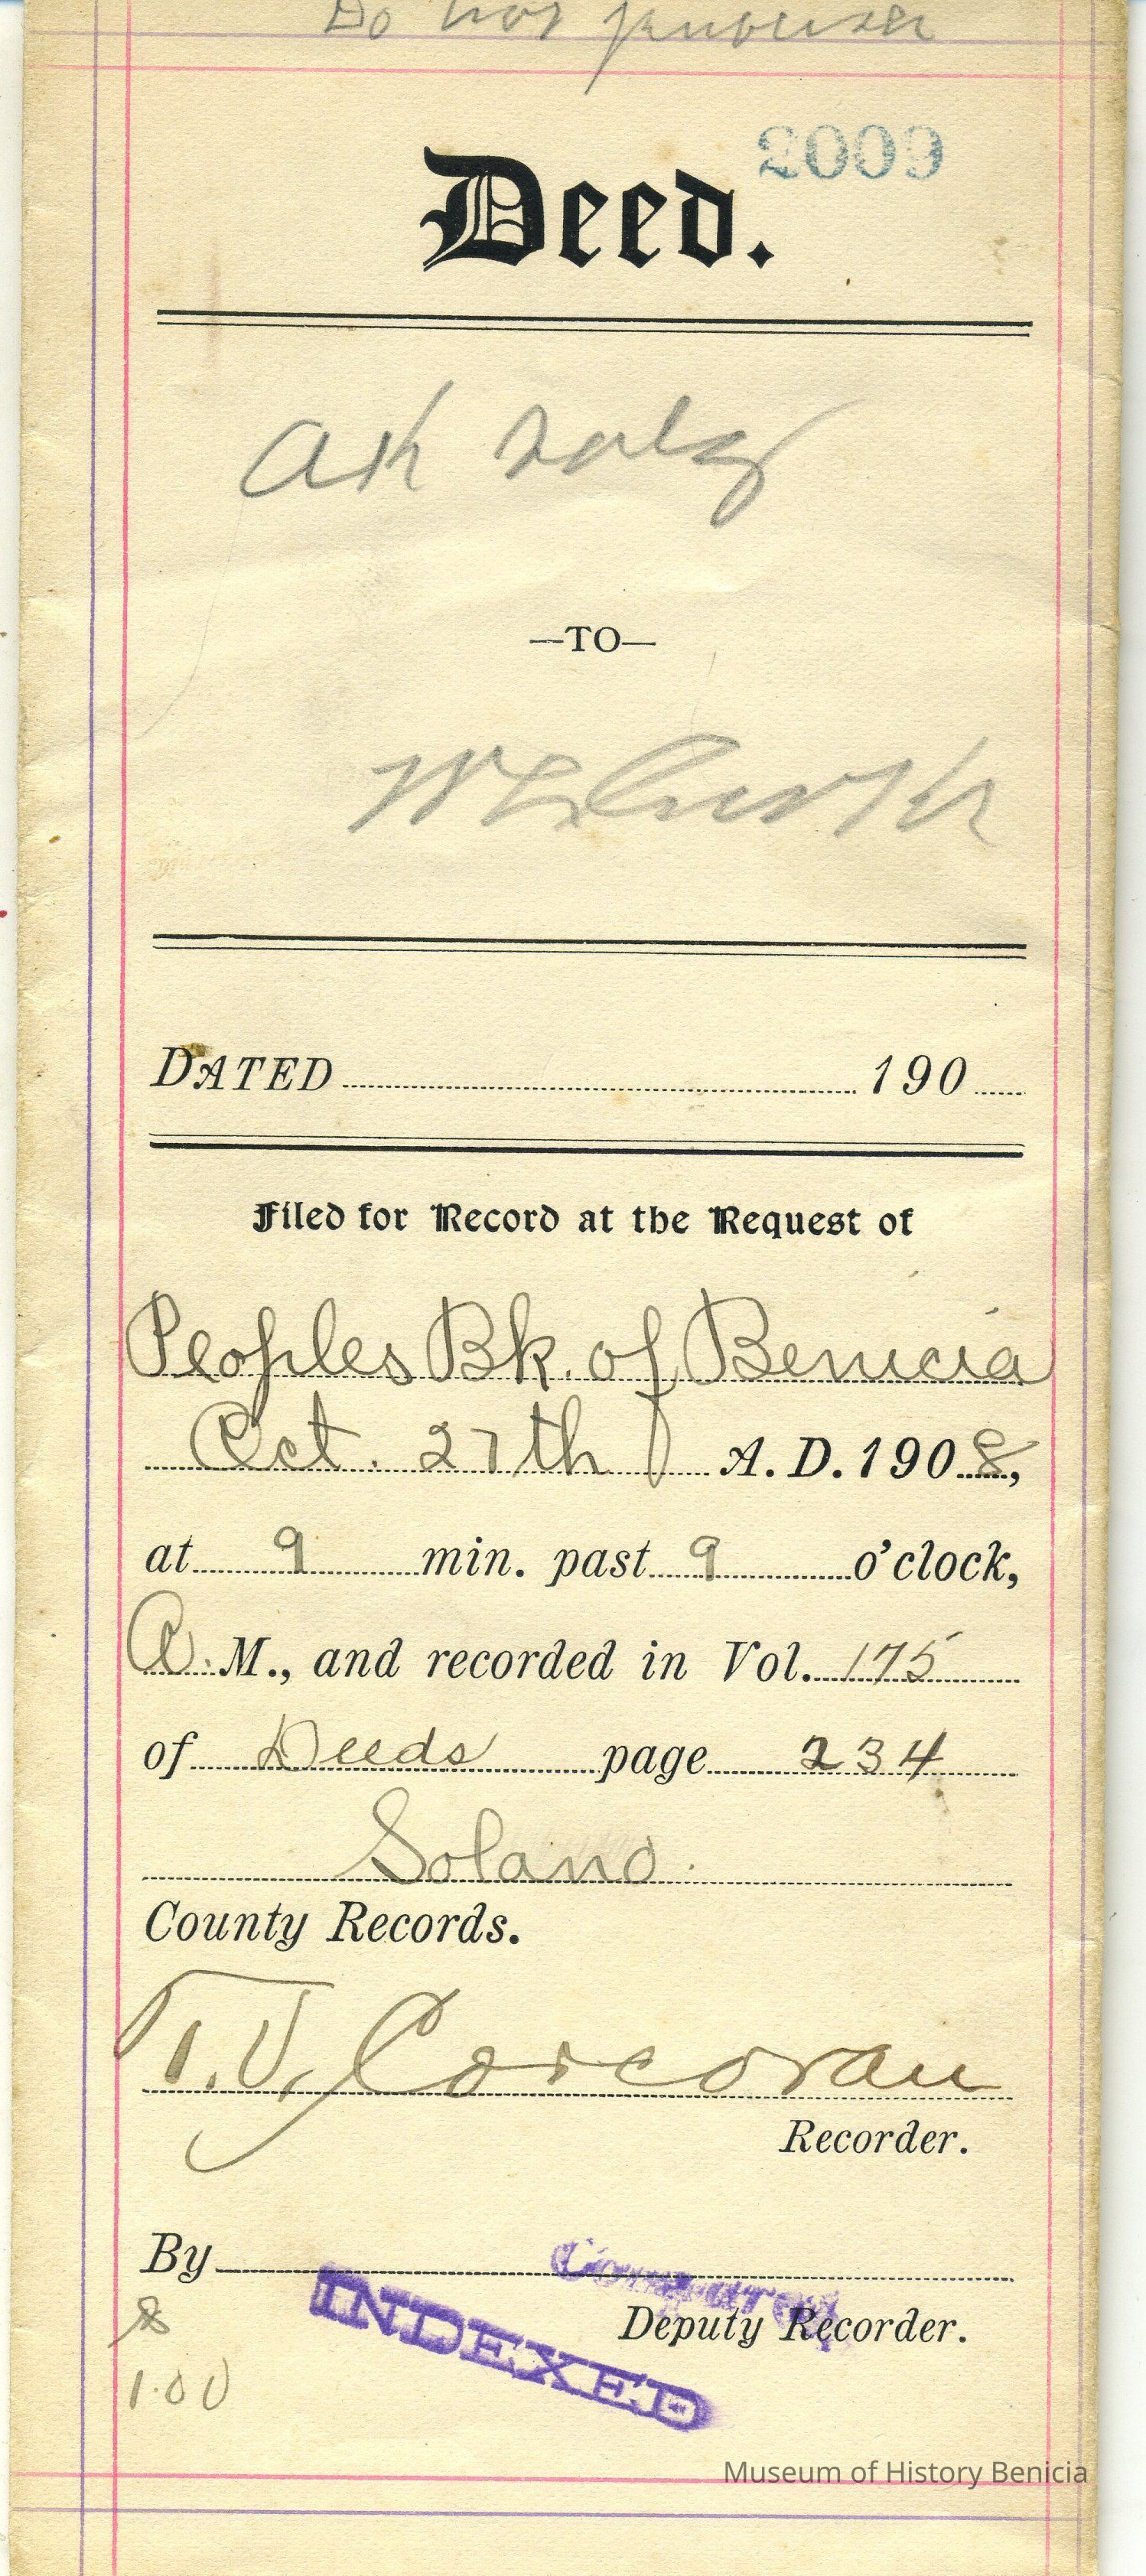 Do not publish
2009
Deed.
—TO—
DATED 190
Filed for Record at the Request of
Peoples Bk. of Benicia
Oct. 27th A.D. 1908,
at 9 min. past 9 o'clock,
A. M., and recorded in Vol. 175
of Deeds page 234
Solano.
County Records.
T. J. Corcoran
Recorder.
By
Compared
Deputy Recorder.
INDEXED
1.00
Museum of History Benicia